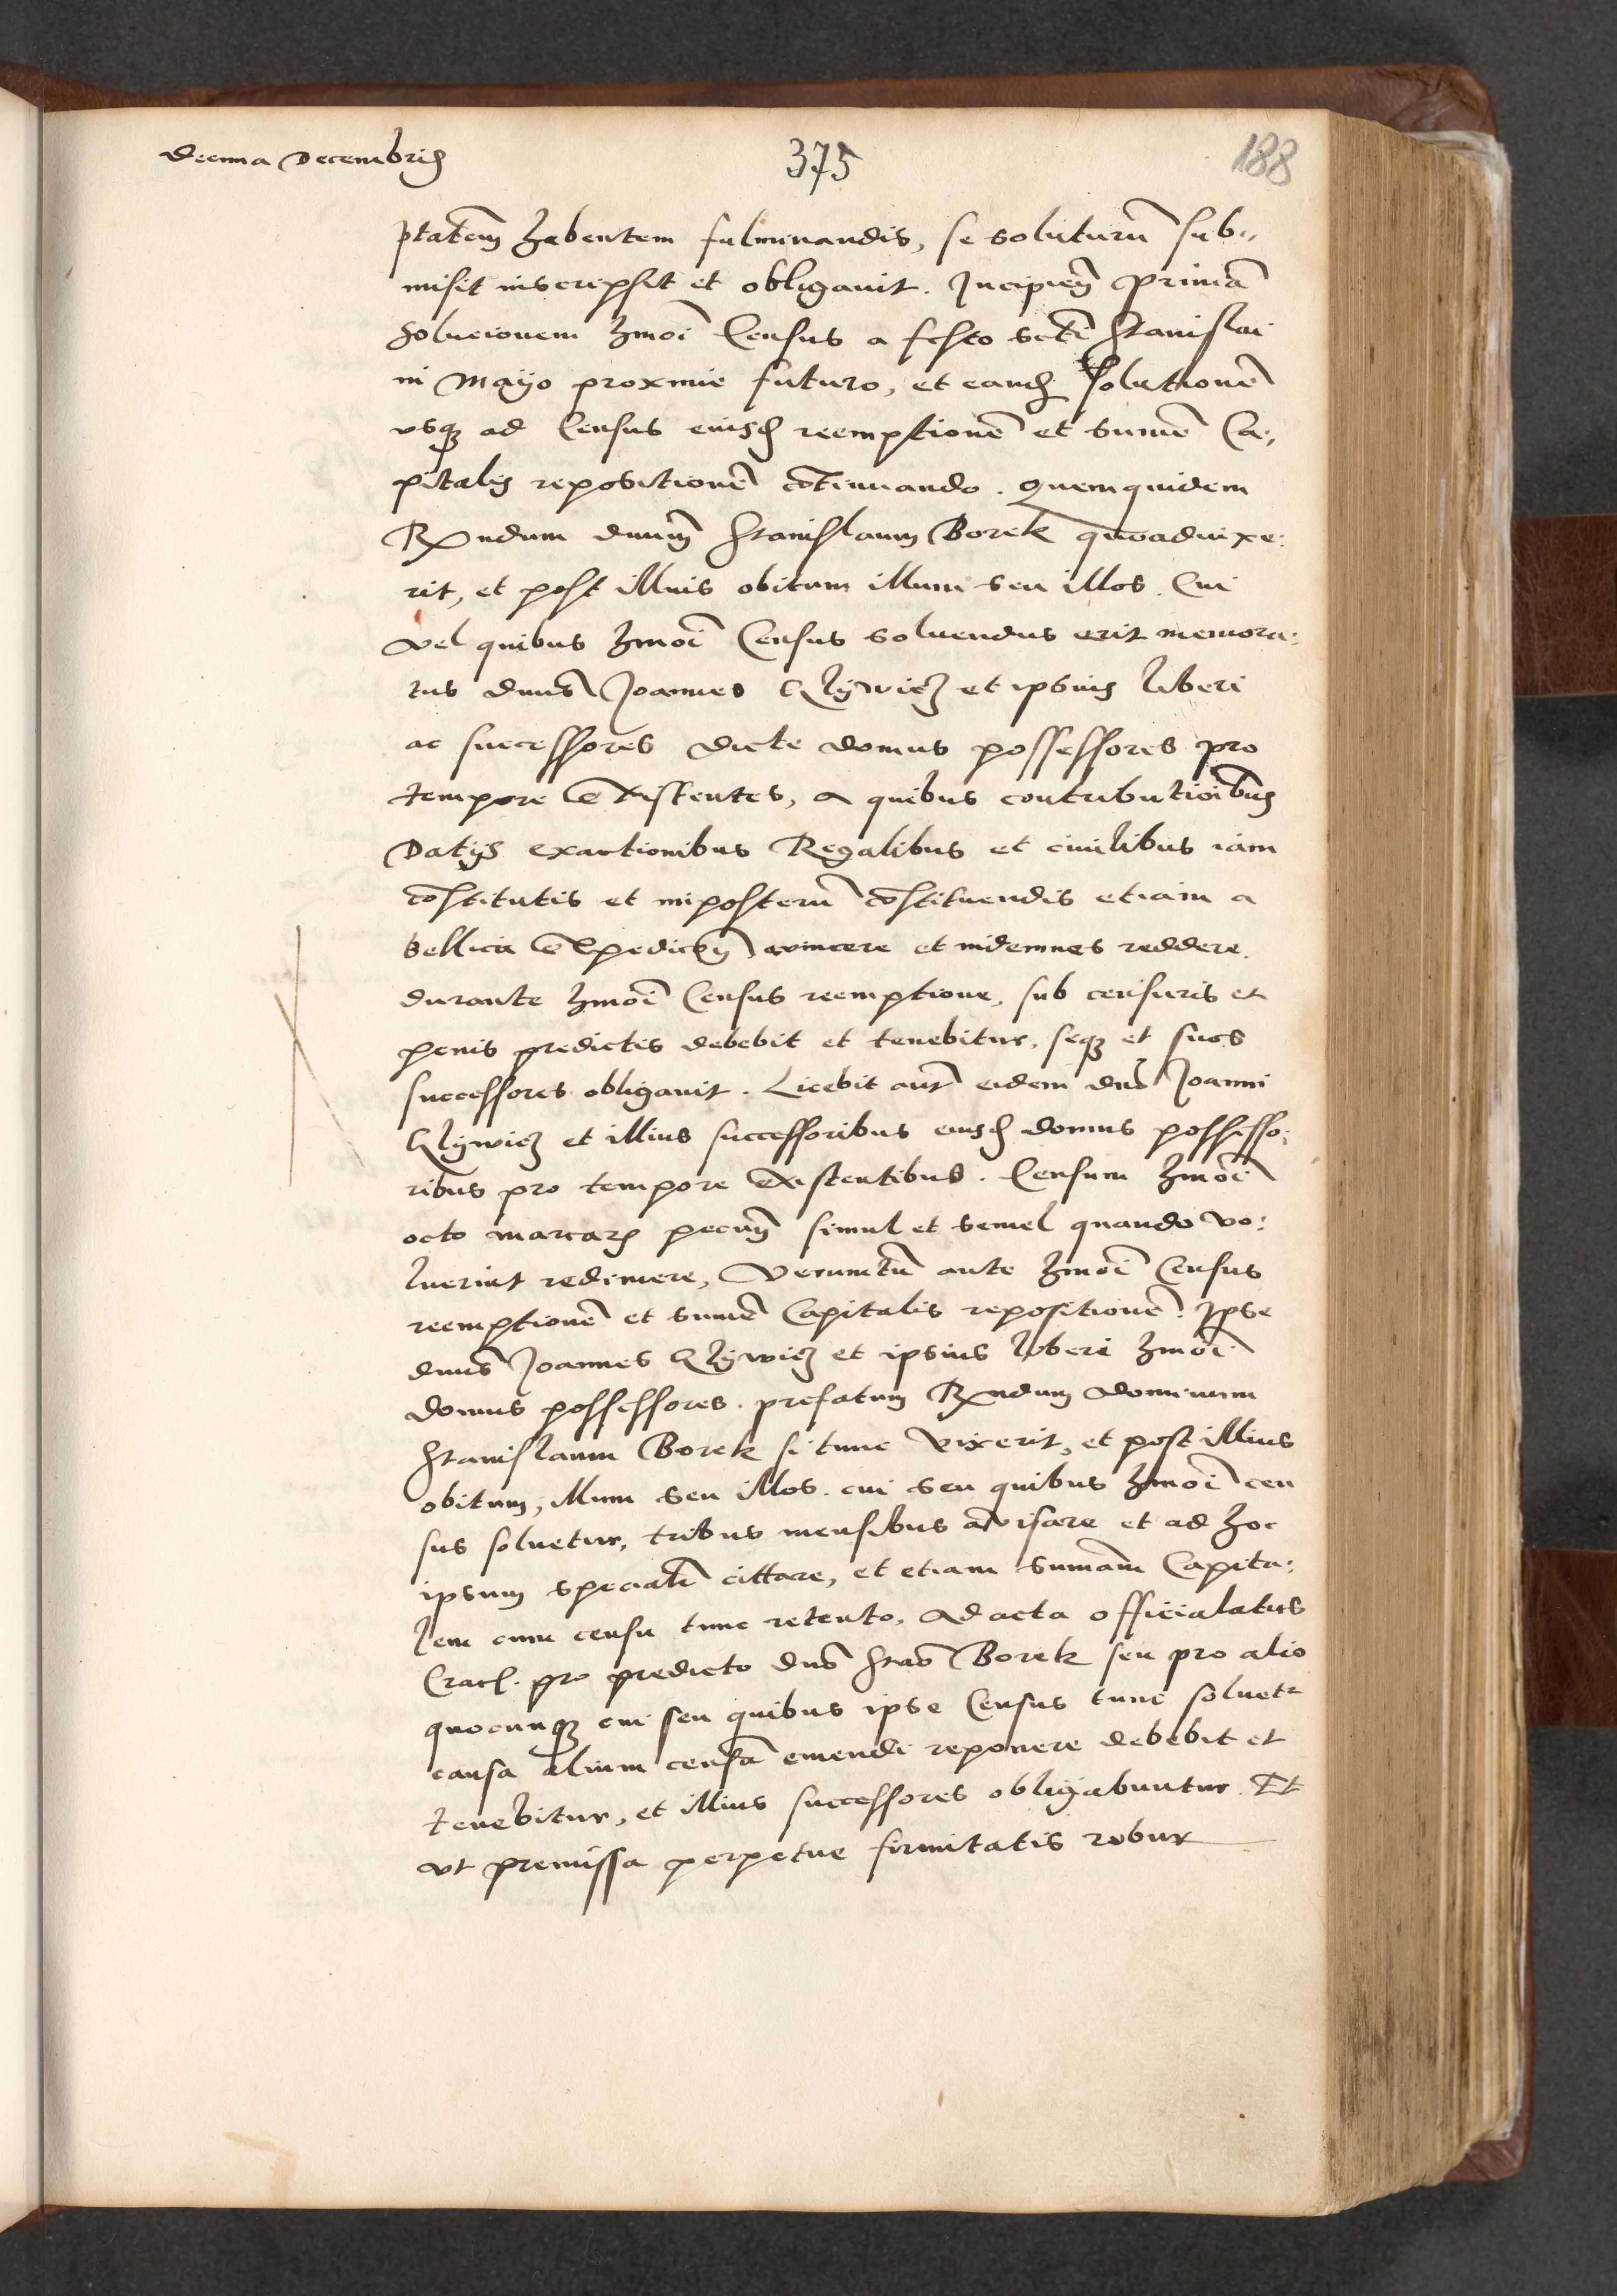 decima Decembris
375
188
ptatem habentem fulminandis, se soluturum sub„
misit inscripsit et obligauit. Incipiens primam
solucionem hmoi Census a festo scti Stanislai
in Mayo proxime futuro, et eand solutionem
vsque ad Census eiusd reemptionem et summe Ca„
pitalis repositionem continuando. Quemquidem
Rndum dnum Stanislaum Borek quoaduixe:
rit, et post illius obitum illum seu illos. Cui
vel quibus hmoi Census soluendus erit memora:
tus dnus Joannes et ipsius liberi
ac successores dicte domus possessores pro
tempore existentes, a quibus contributioibus
Datijs exactionibus Regalibus et ciuilibus iam
constitutis et inposterum constituendis etiam a
bellica expedicione euincere et indemnes reddere.
durante hmoi Census reemptione, sub censuris et
penis predictis debebit et tenebitur, seque et suos
successores obligauit. Licebit autem eidem dno Joanni
et illius successoribus eiusd domus possesso:
ribus pro tempore existentibus. Censum hmoi
octo marcarum pecun simul et semel quando vo:
luerint redimere, Verumtamen ante hmoi Census
reemptionem et summe Capitalis repositionem. Ipse
dnus Joannes et ipsius liberi hmoi
domus possessores. prefatum Rndum dominum
Stanislaum Borek si tunc vixerit, et post illius
obitum, illum seu illos. cui seu quibus hmoi cen
sus soluetur, tribus mensibus auisare et ad hoc
ipsum specialem cittare, et etiam summam Capita:
lem cum censu tunc retento, ad acta officialatus
Crac. pro predicto dno Stao Borek seu pro alio
quocunque cui seu quibus ipse Census tunc soluetur
causa alium censum emendi reponere debebit et
tenebitur, et illius successores obligabuntur. Et
vt premissa perpetue firmitatis robur